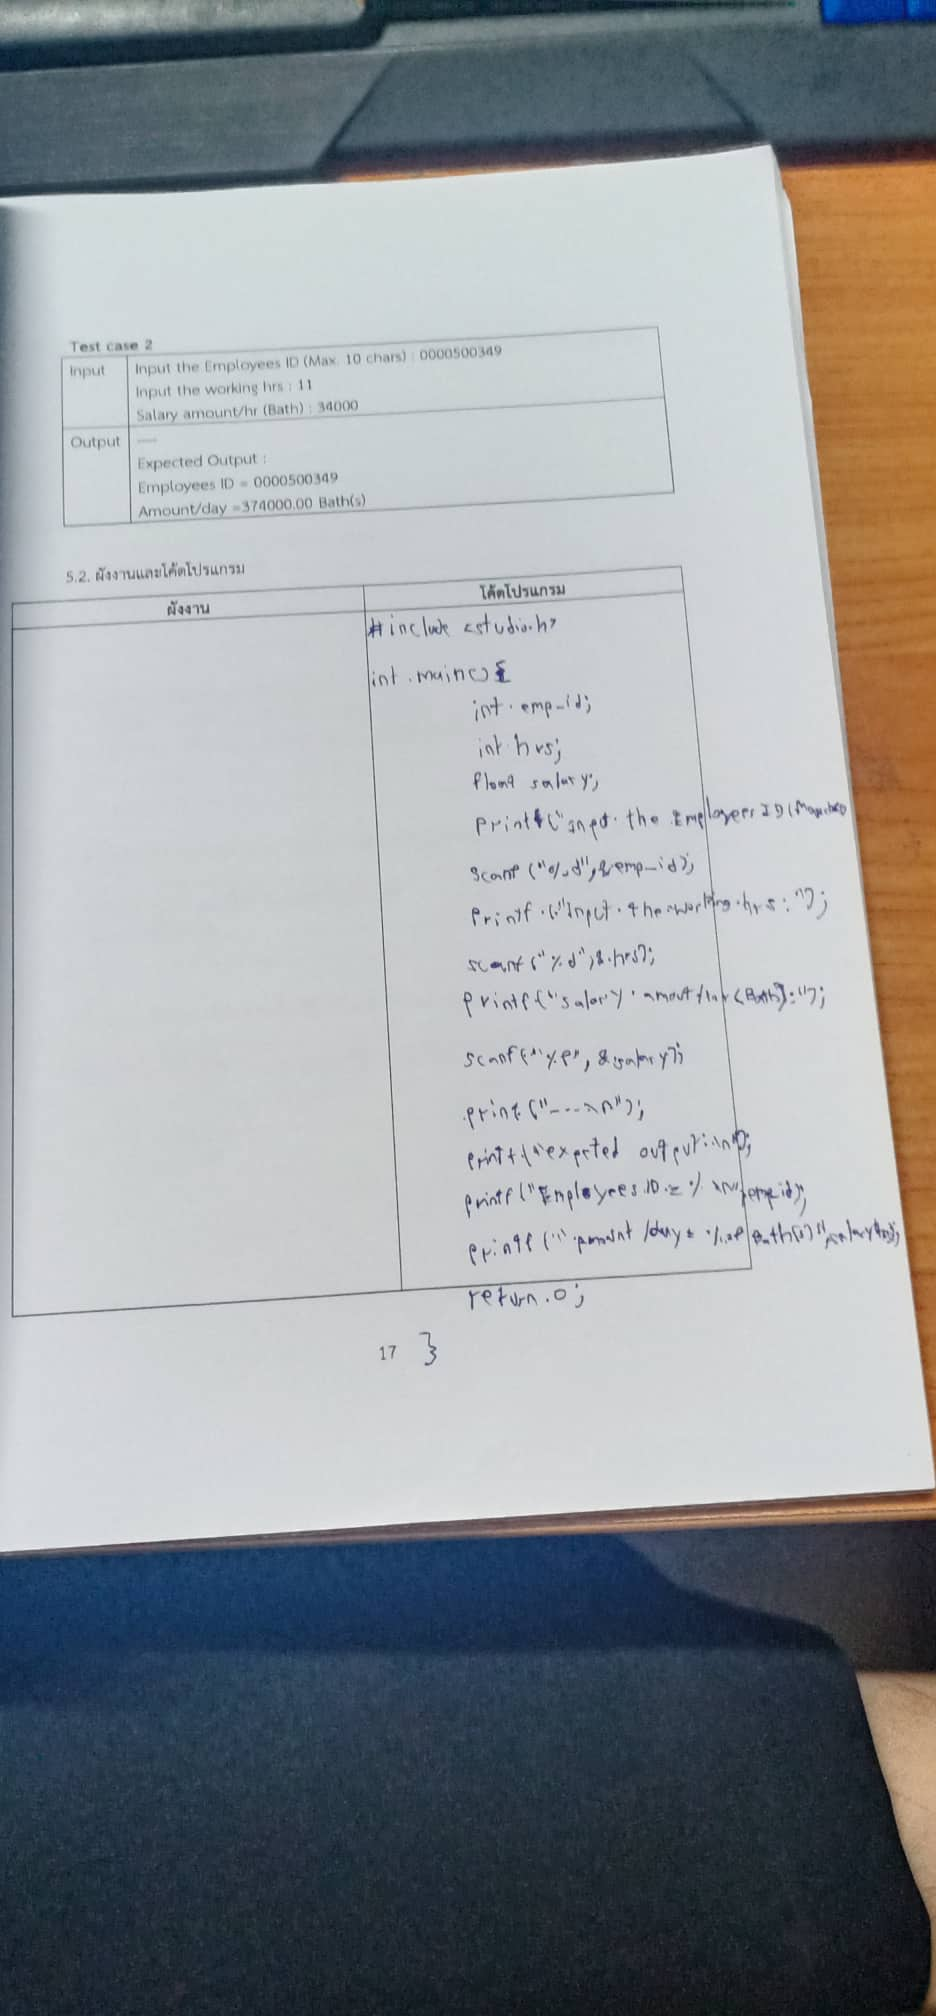 Test case 2
Input
Input the Employees ID (Max. 10 chars) : 0000500349
Input the working hrs : 11
Salary amount/hr (Bath) : 34000
Output
----
Expected Output :
Employees ID = 0000500349
Amount/day =374000.00 Bath(s)
5.2. ผังงานและโค้ดโปรแกรม
ผังงาน
โค้ดโปรแกรม
#include <studio.h>
int main() {
int emp_id;
int hrs;
float salary;
printf("Input the Employees ID (
scanf ("%d",&emp_id);
printf ("Input the working hrs : ");
scanf ("%d",&hrs);
printf ("salary amout/hr (Bath):");
scanf ("%f", &salary);
print ("---\n");
printf ("expected output :\n");
printf ("Employees ID = % \n", emp_id);
printf (" /day = Bath(s)"
return 0;
17
}